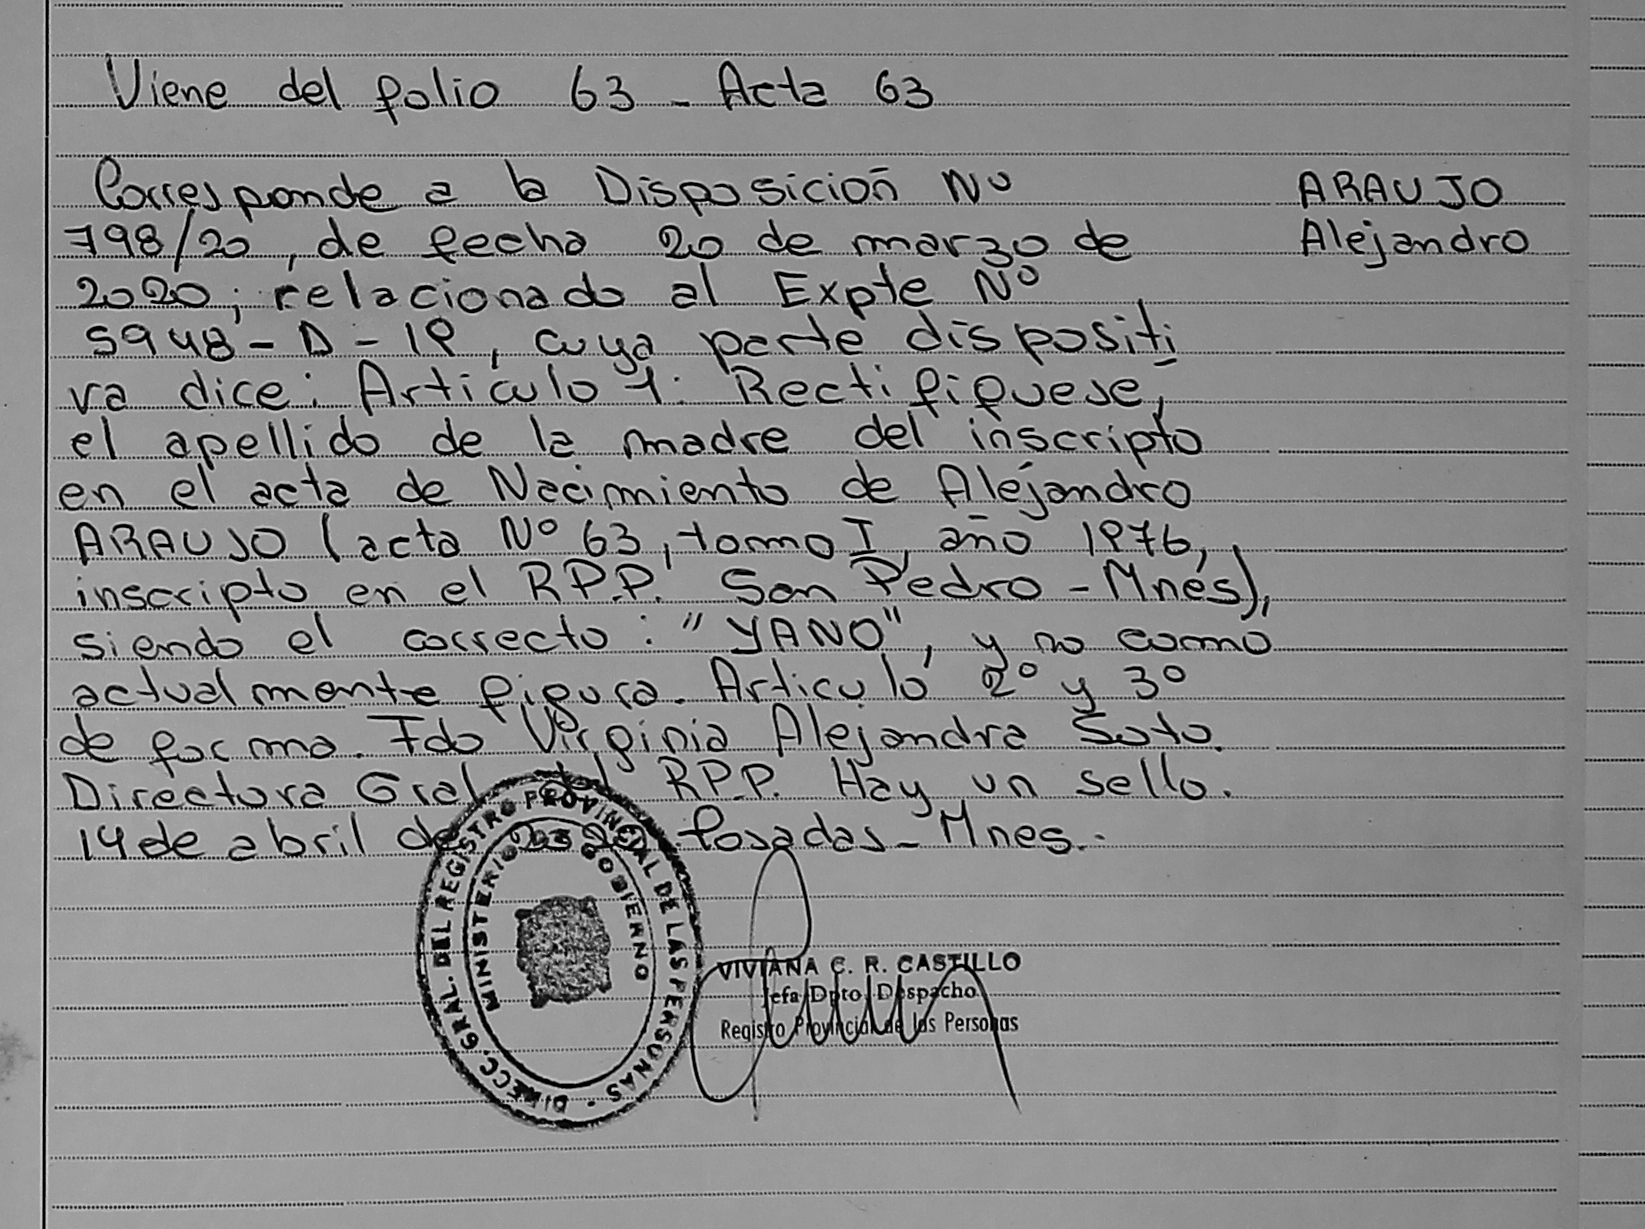 Viene del folio 63 - Acta 63
Corresponde a la Disposición Nº
ARAUJO
798/20, de fecha 20 de marzo de
Alejandro
2020; relacionado al Expte Nº
5948-D-19, cuya parte dispositi
va dice: Artículo 1: Rectifiquese,
el apellido de la madre del inscripto
en el acta de Nacimiento de Alejandro
ARAUJO (acta Nº 63, tomo I, año 1976,
inscripto en el R.P.P. San Pedro - Mnes),
siendo el correcto: "YANO", y no como
actualmente figura. Articulo 2º y 3º
de forma. Fdo Virginia Alejandra Soto.
Directora Gral del R.P.P. Hay un sello.
14 de abril de 2020. Posadas - Mnes.-
DIRECC. GRAL. DEL REGISTRO PROVINCIAL DE LAS PERSONAS
MINISTERIO DE GOBIERNO
VIVIANA C. R. CASTILLO
Jefa Dpto Despacho
Registro Provincial de las Personas